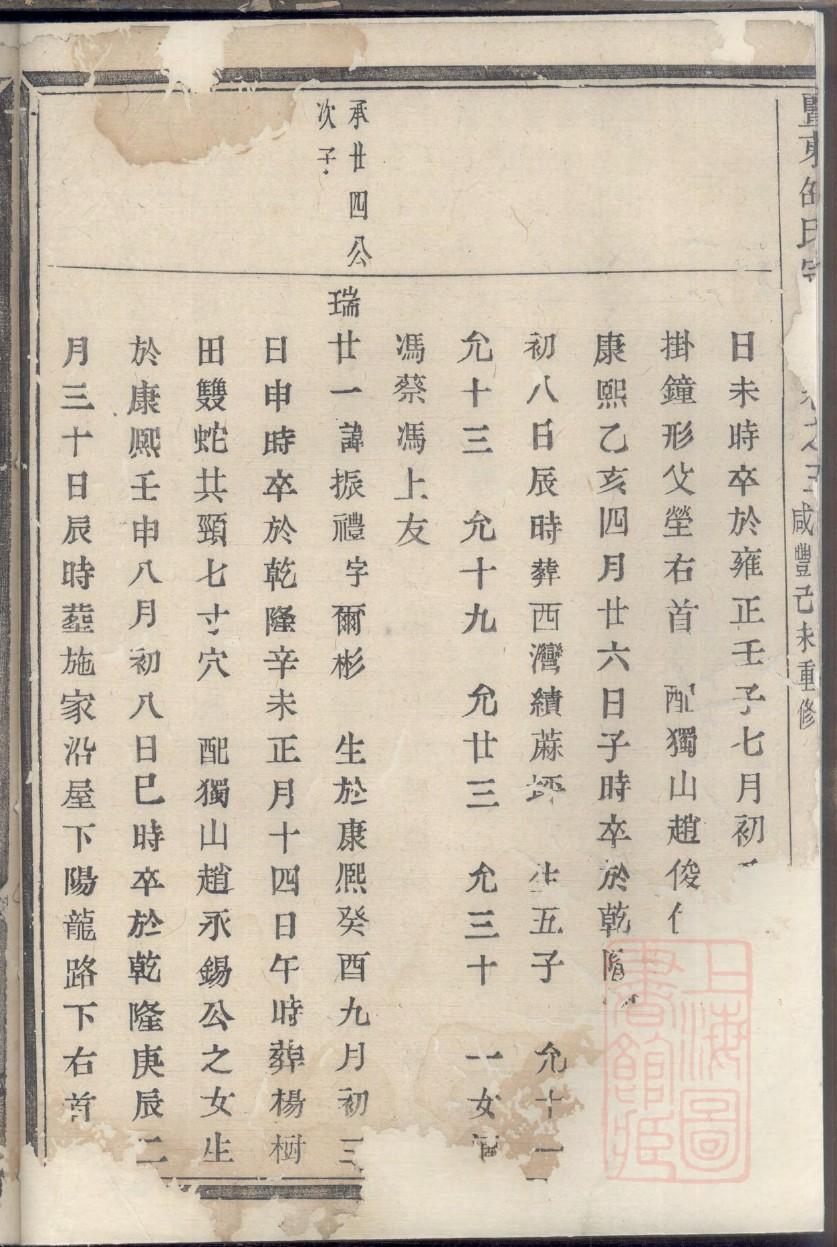 暨東
氏
咸豐己未重修
日未時卒於雍正壬子七月初
掛鐘形父塋右首　配獨山趙俊
康熙乙亥四月廿六日子時卒於乾隆
初八日辰時葬西灣績蔴坪　生五子　允十一
允十三　允十九　允廿三　允三十　一女適
馮蔡馮上友
承廿四公
次子
瑞廿一諱振禮字爾彬　生於康熙癸酉九月初三
日申時卒於乾隆辛未正月十四日午時葬楊樹
田雙蛇共頸七寸穴　配獨山趙永錫公之女生
於康熙壬申八月初八日巳時卒於乾隆庚辰二
月三十日辰時塟施家沿屋下陽龍路下右首
上海圖
書館藏